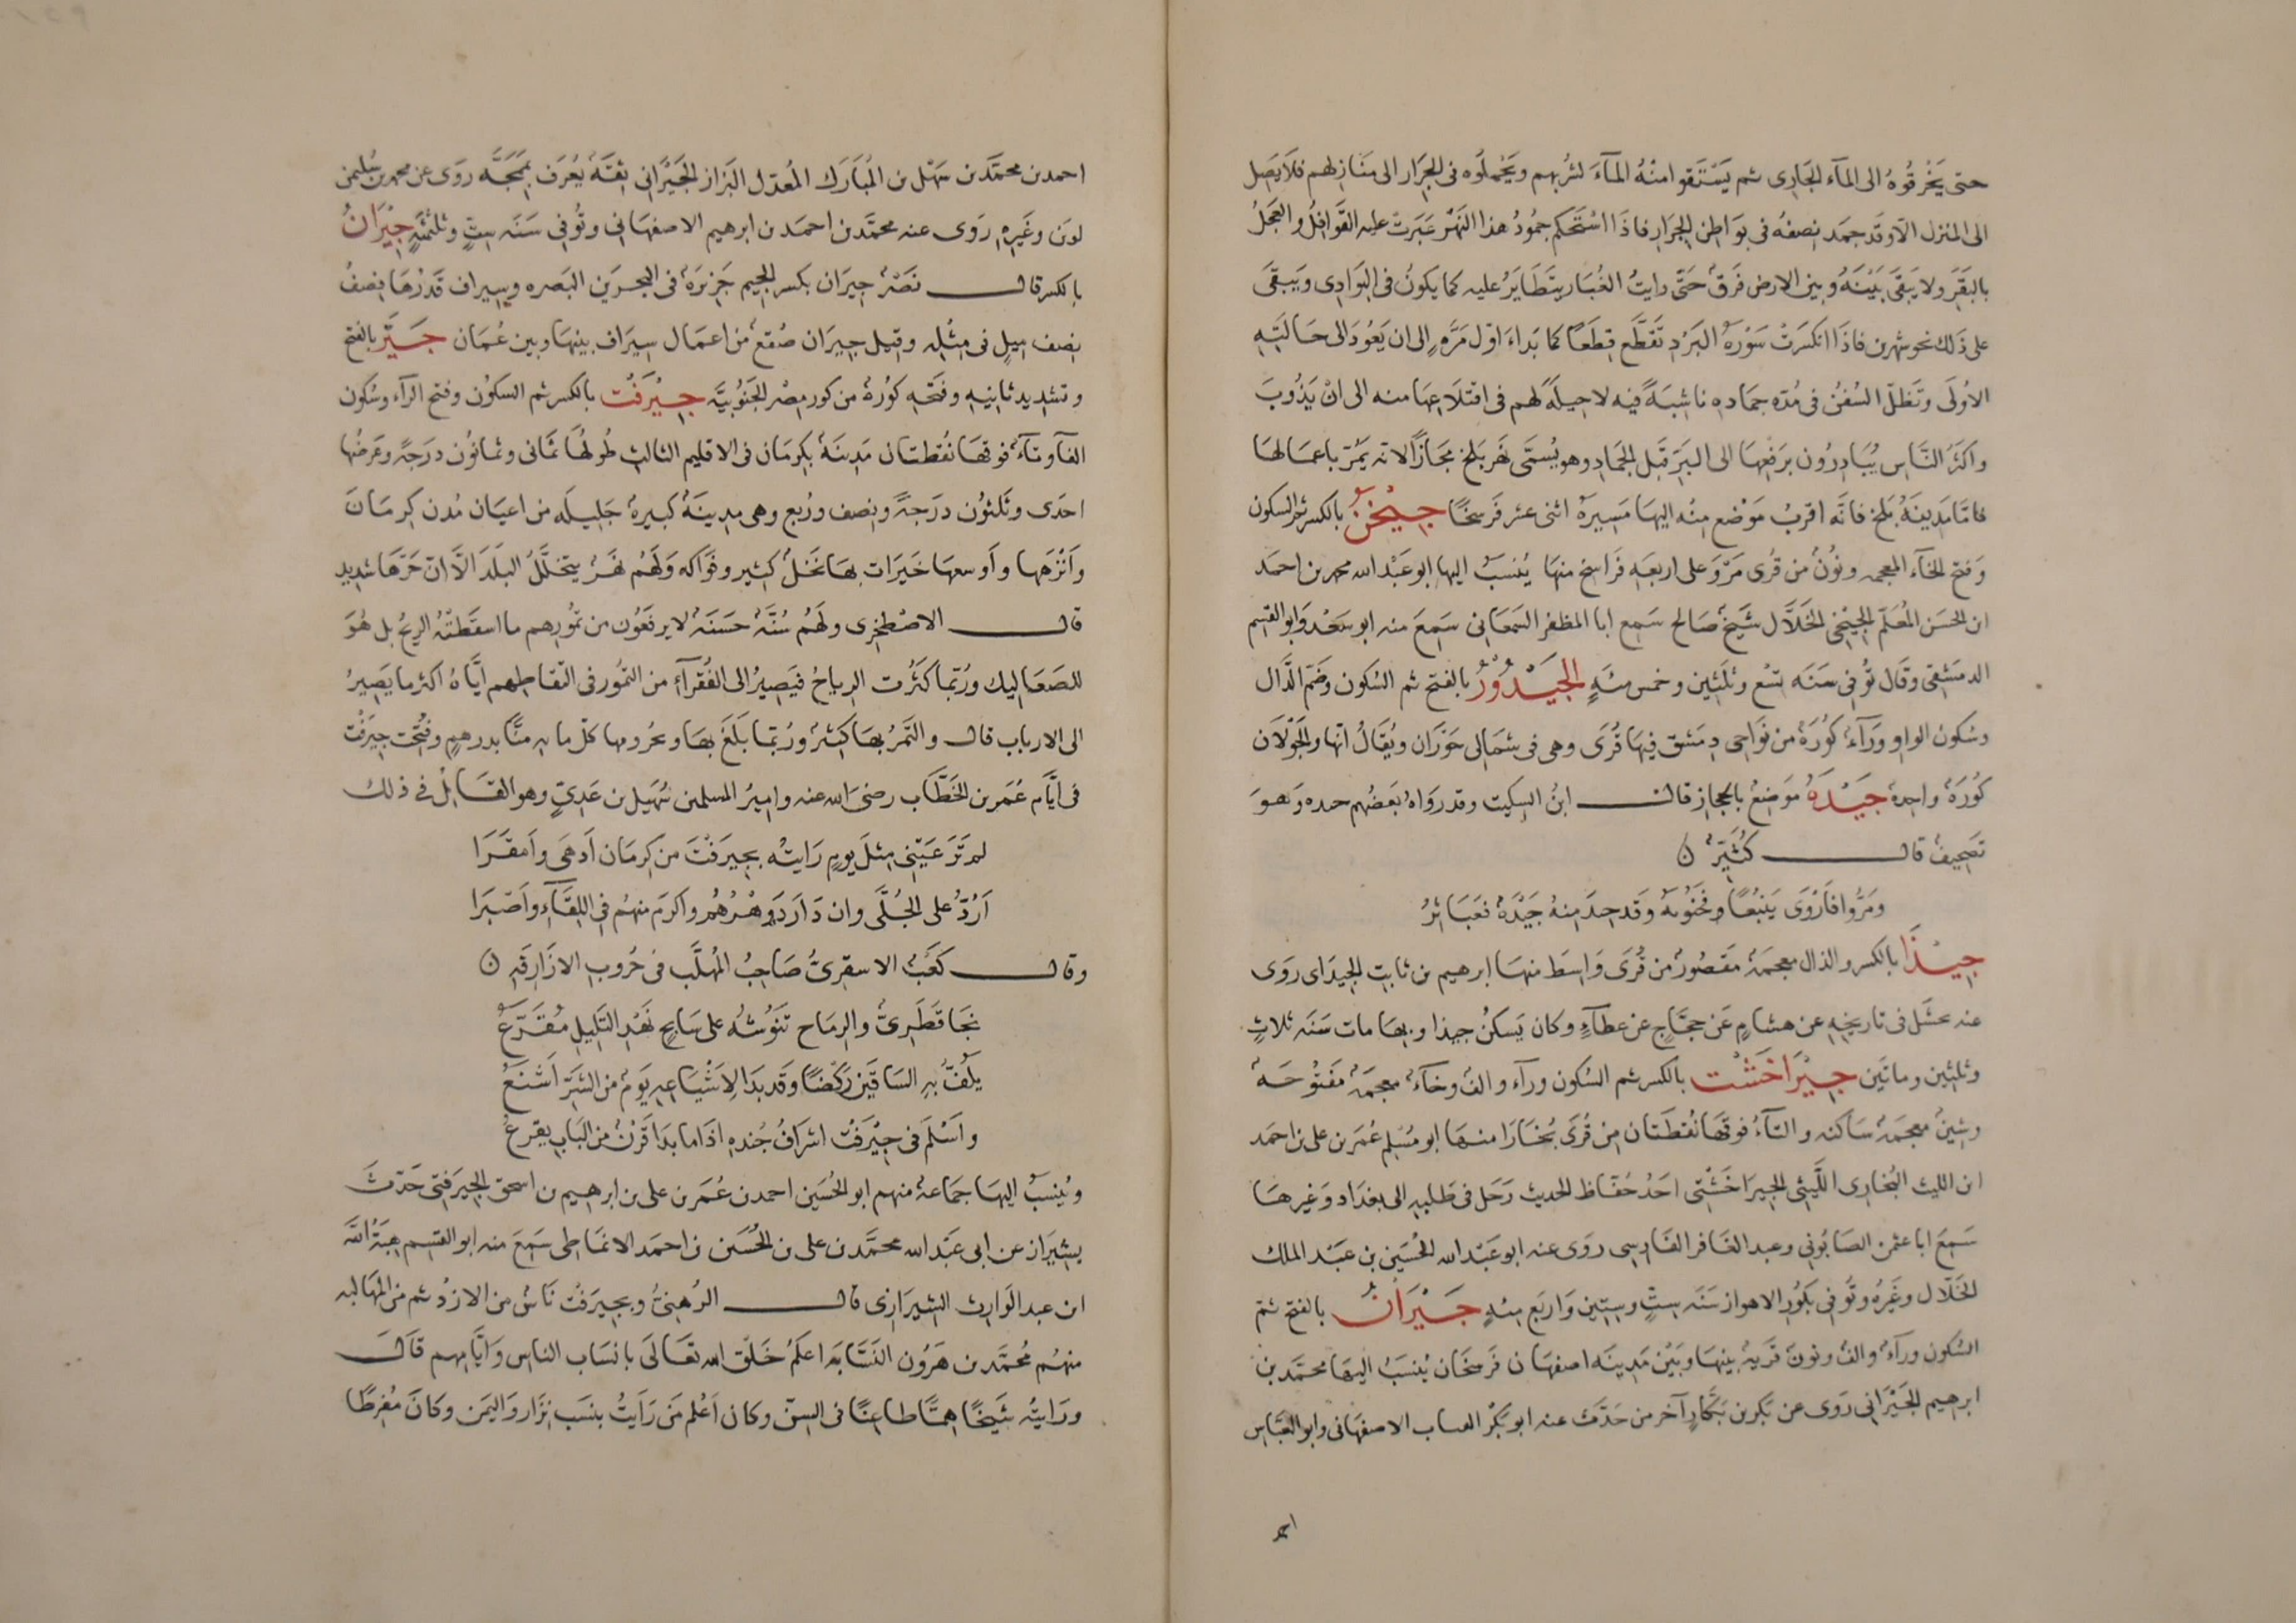 حتى يَخْرقُوهُ الى المآء الجَارِى ثم يَسْتَقوا مِنْهُ المآءَ لشُربهم ويَحْملُوه فى الجِرَار الى مَنَازِلهم فلَا يَصَل
الى المنزل الّا وقَد جمَد نِصفهُ فى بوَاطِن الجرَارِ فاذَا اسْتَحكم جمُودُ هذا النَهْر عَبَرتْ عليه القَوَافلُ والعَجَلُ
بالبَقَر ولا يَبقَى بَيْنَهُ وبين الارض فَرَقٌ حَتّى رايتُ الغُبَار يتَطَايَرُ عليه كما يَكونُ فى البَوَادِى ويَبقَى
على ذَلك نحو شهرين فاذَا انكسَرَتْ سَوْرَةُ البَرَدِ تقَطَّع قِطَعاً كما بَداءَ اوّل مَرَّهٍ الى ان يَعُودَ الى حَالَتِهِ
الاوُلَى وتَظلّ السُفنُ فى مُدّه جمَادِهِ ناشِبَةً فيه لا حيلَةَ لهم فى اقتلَاعِهَا منه الى انْ يَذُوبَ
واكثَرُ النَّاسِ يُبَادِرُون برَفعِهَا الى البَرِّ قبَل الجَمَادِ وهو يُسَمَّى نَهَر بَلخ مجَازاً لانه يَمُرّ باعمَالهَا
فامّا مَدِينَةُ بَلخ فانّه اقربُ مَوْضع مِنْه اليهَا مَسِيرَة اثنى عشر فَرسخًا جِيْخَنٌ بالكسر ثم السكون
وَفتح الخآء المعجمه ونُونٌ من قُرى مَرْوَ على اربعَهِ فَرَاسخ منهَا يُنسبُ اليها ابو عَبْد الله محمد بن احمَد
ابن الحسَن المُعَلّم الجِيْخَنى الخَلَّال شَيْخٌ صَالح سَمِع ابا المظفر السَمعَانى سَمِعَ منه ابو سَعْد وَابو القسم
الدمَشقى وقَال تُوفى سَنَه تِسْع وثلثِين وخمس مئهٍ الجَيْدُوْرُ بالفتح ثم السُكون وضَمّ الذَّال
وسُكون الواو وَرَآءٌ كُوْرَةٌ من نوَاحى دِمَشق فيهَا قُرَى وهى فى شمَالى حَوْرَان ويُقَالُ انّها والجَوْلَان
كُوْرَةٌ واحِدةٌ جَيْدَةُ مَوَضِعٌ بالحجاز قالــ ابنُ السِكيت وقد روَاهُ بَعضُهم حىده وَهوَ
تَصحِيفٌ قالــ كُثَيّرٌ ن
ومَرُّوا فاَرْوَى يَنبُعًا وجُنُوبُهُ وقَد جِيْدَ مِنهُ جَيْدَةٌ فعَبَاثِرُ
جِيْذَا بالكسر والذال معجمَهٌ مقصُورٌ من قُرَى وَاسِط منهَا ابرهيم بن ثابت الجيذاى روَى
عنه بحشَل فى تاريخِهِ عن هشامٍ عَن حجَّاجٍ عن عطآءٍ وكان يَسكنُ جيذا وبهَا مات سَنَه ثلاثٍ
وثلثِين ومائتَين جِيْرَاخَشْت بالكسر ثم السُكون ورآء والفٌ وخآءٌ معجمَةٌ مَفتُوحَهٌ
وشِينٌ معجمَةٌ سَاكنه والتآءُ فوقهَا نُقطَتَان مِن قُرَى بُخَارَا منهَا ابو مُسْلم عُمَر بن على بن احمَد
ابن الليث البُخَارِى اللَّيثى الجيرَاخَشْتى احَدُ حُفّاظ الحديث رَحَل فى طَلبِه الى بغدَاد وَغيرهَا
سَمِعَ ابا عثمن الصَابُونى وعبد الغَافر الفَارِسى روَى عنه ابو عَبْد الله الحُسَين بن عَبْد الملك
الخَلّال وغَيرُه وتُوفى بكُوَر الاهواز سَنَه سِتٍّ وسِتِين وَاربَع مئهٍ جَيْرَانُ بالفتح ثم
السُكون ورآءٌ والفٌ ونونٌ قَريةٌ بينهَا وبَيْن مَدِينَه اصفهَان فَرسخَان يُنسَبُ اليهَا محمّد بن
ابرهيم الجَيْرَانى روَى عن بَكر بن بَكَّارٍ آخر من حَدّث عنه ابو بَكر القباب الاصفهَانى وابو العَبَّاس
احمد
احمد بن محمّد بن سَهْل بن المُبَارَك المُعدّل البَزاز الجَيْرَانى ثِقَةٌ يُعرَف بمَمَجَّه روَى عن محمد بن سُليمن
لوين وغَيرِهِ رَوَى عنه محمّد بن احمَد بن ابرهيم الاصفهَانى وتُوفى سَنَه سِتٍّ وثلثمئةٍ جِيْرَانُ
بالكسر قالــ نَصْرٌ جِيرَان بكسر الجيم جَزِيرَةٌ فى البَحر بَين البَصره وسِيراف قَدْرُهَا نِصْفُ
نصف مِيلٍ فى مِثْلِه وقيل جيرَان صُقعٌ من اعمَال سِيرَاف بينهَا وبين عُمَان جَيَّر بالفتح
وتشديد ثانيِهِ وفَتحِهِ كوُرةٌ من كور مصْر الجَنُوبيَّه جِيْرَفْت بالكسر ثم السكوُن وفتح الرآء وسُكون
الفآ وتآءٌ فوقهَا نُقطَتان مَدِينَةٌ بكِرمَان فى الاقليم الثالث طُولُهَا ثمَانى وثمانوُن درَجهً وعَرضُها
احدَى وثلَثوُن درَجَةً ونِصف ورُبع وهى مدِينَةٌ كبيرةٌ جَليلَه من اعيَان مُدن كِرمَانَ
واَنْزَهِها واَوسعهَا خَيرَات بهَا نَخَلٌ كثِير وفوَاكه وَلَهُم نَهَرٌ يتخلَّلُ البَلَدَ الّا انّ حَرّهَا شدِيد
قالــ الاصْطخرِى ولَهُم سُنَّهٌ حَسَنَةٌ لا يرفعُون من تمُورِهم ما اسقَطَتْهُ الرِيحُ بل هُوَ
للصَعَاليك ورُبّمَا كثُرت الرياحُ فَيَصِيرُ الى الفُقَرآءِ من التمُور فى التقاطِهم ايَّاهُ اكثر ما يَصِيرُ
الى الارباب قالــ والتَمْرُ بهَا كَثِيرٌ ورُبّمَا بلَغَ بهَا وبجُرومها كلّ مائةِ مَنًّا بدرهمٍ وفُتحَت جيرَفْت
فى ايّام عُمَر بن الخَطّاب رضى الله عنه وامِيرُ المسلمين سُهَيل بن عَدِىٍّ وهو القَايلُ فى ذلك
لم تَرَ عَيْنى مِثلَ يومٍ رَايتُه بجِيرَفْتَ من كِرمَان اَدهَى واَمقَرَا
اَرَُدُّ على الجُلَّى وان دَارَ دَهْرُهُم واكرَم منهُم فى اللِقآءِ واَصْبَرا
وقالــ كَعْبُ الاسقرِىُّ صَاحِبُ المُهلَّب فى حُروب الازَارِقهِ ن
نَجَا قَطَرِىٌّ والرِمَاح تَنوُشُهُ على سَابحٍ نَهْدِ التَلِيلِ مُقَزَّعُ
يلُفّ بهِ السَاقَين رَكْضًا وقَد بدَا لِاَشْيَاعِهِ يَوَمٌ من الشَرّ اَشْنَعُ
واَسْلَمَ فى جِيْرَفْت اشرَافُ جُندهِ اذَا ما بدَا قَرْنٌ من البَاب يقرعُ
ويُنسَبُ اليهَا جمَاعةٌ منهم ابو الحُسَين احمد بن عُمَر بن على بن ابرهيم بن اسحق الجيرَفتى حَدّثَ
بشِيرَاز عن ابى عَبْد الله محمَّد بن على بن الحُسَين بن احمَد الانماطى سَمِعَ منه ابو القسم هِبَةُ الله
ابن عبد الوَارِث الشيرَازى قالــ الرُهنىُّ وبجيرَفْت نَاسٌ من الازدْ ثم من المَهَالبه
منهُم مُحمَّد بن هَرُون النَسّابَه اعلَمُ خَلْق الله تعَالَى بانسَاب الناس وَايَّامِهم قَالَــ
ورَايتُه شَيخًا هِمًّا طاعِنًا فى السِنّ وكان اَعْلم مَن رَايتُ بنسَب نِزَار وَاليمَن وكانَ مُفرِطًا